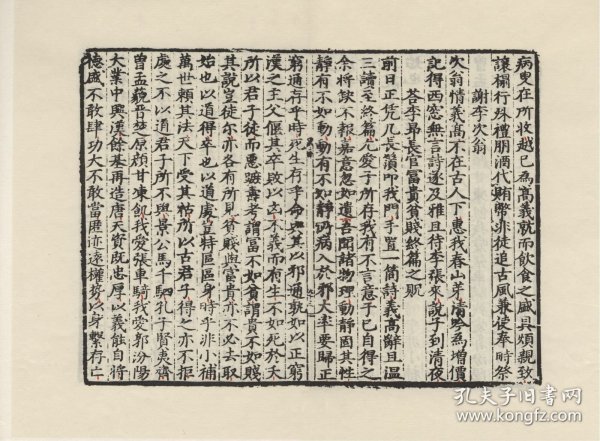 病叟在所收越已為高義就而飲食之盛具煩親致
讓欄行殊禮朋酒代賄幣非徒追古風兼使奉時祭
謝李次翁
次翁情義高不在古人下惠我春山茅清吟為增價
記得西窓無言詩遂及雅且待李張來說子到清夜
荅李昂長官富貴貧賤終篇之貺
前日正凭几長鬚叩我門手置一筒詩義高辭且溫
三讀至終篇凢愛子所存我有不言意子已自得之
余將缺不報嘉意忽如遺吾聞諸物理動靜固其性
靜有不如動動有不如靜两病入於邪大率要歸正
窮通存乎時死生存乎命與其以邪通孰如以正窮
漢之主父偃其卒敗以 不義而有生不如死於天
所以君子徒而惡踈壽考謂富不如貧謂貴不如賤
其說豈徒尔亦各有所見貧賤與富貴亦不必去取
始也以道得卒也以道處豈特區區身時乎非小補
萬世賴其法天下受其祜所以古君子得之亦不拒
處之不以道君子所不與景公馬千駟孔子賢夷齊
曾孟藐晉楚原顔甘凍飢我愛張車騎我愛郭汾陽
大業中興漢餘基再造唐天資既忠厚以義能自將
德盛不敢肆功大不敢當匪亦遠權势以身繫存亡
孔夫子旧书网
www.kongfz.com